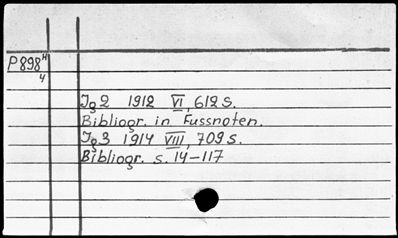 P 898 H
4
Jg 2 1912 VI, 612 S.
Bibliogr. in Fussnoten.
Jg 3 1914 VIII, 709 S.
Bibliogr. s. 14-117